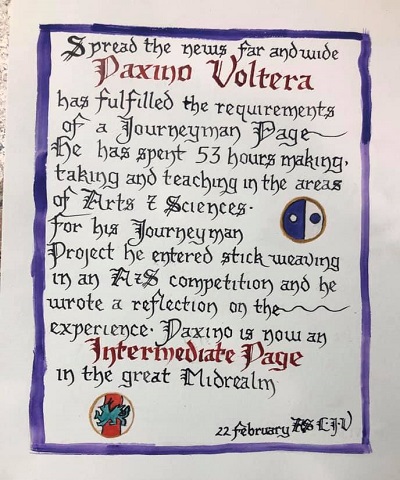 Spread the news far and wide
Paxino Voltera
has fulfilled the requirements
of a Journeyman Page
He has spent 53 hours making,
taking and teaching in the areas
of Arts & Sciences.
For his Journeyman
Project he entered stick weaving
in an A&S competition and he
wrote a reflection on the
experience. Paxino is now an
Intermediate Page
in the great Midrealm
22 February AS